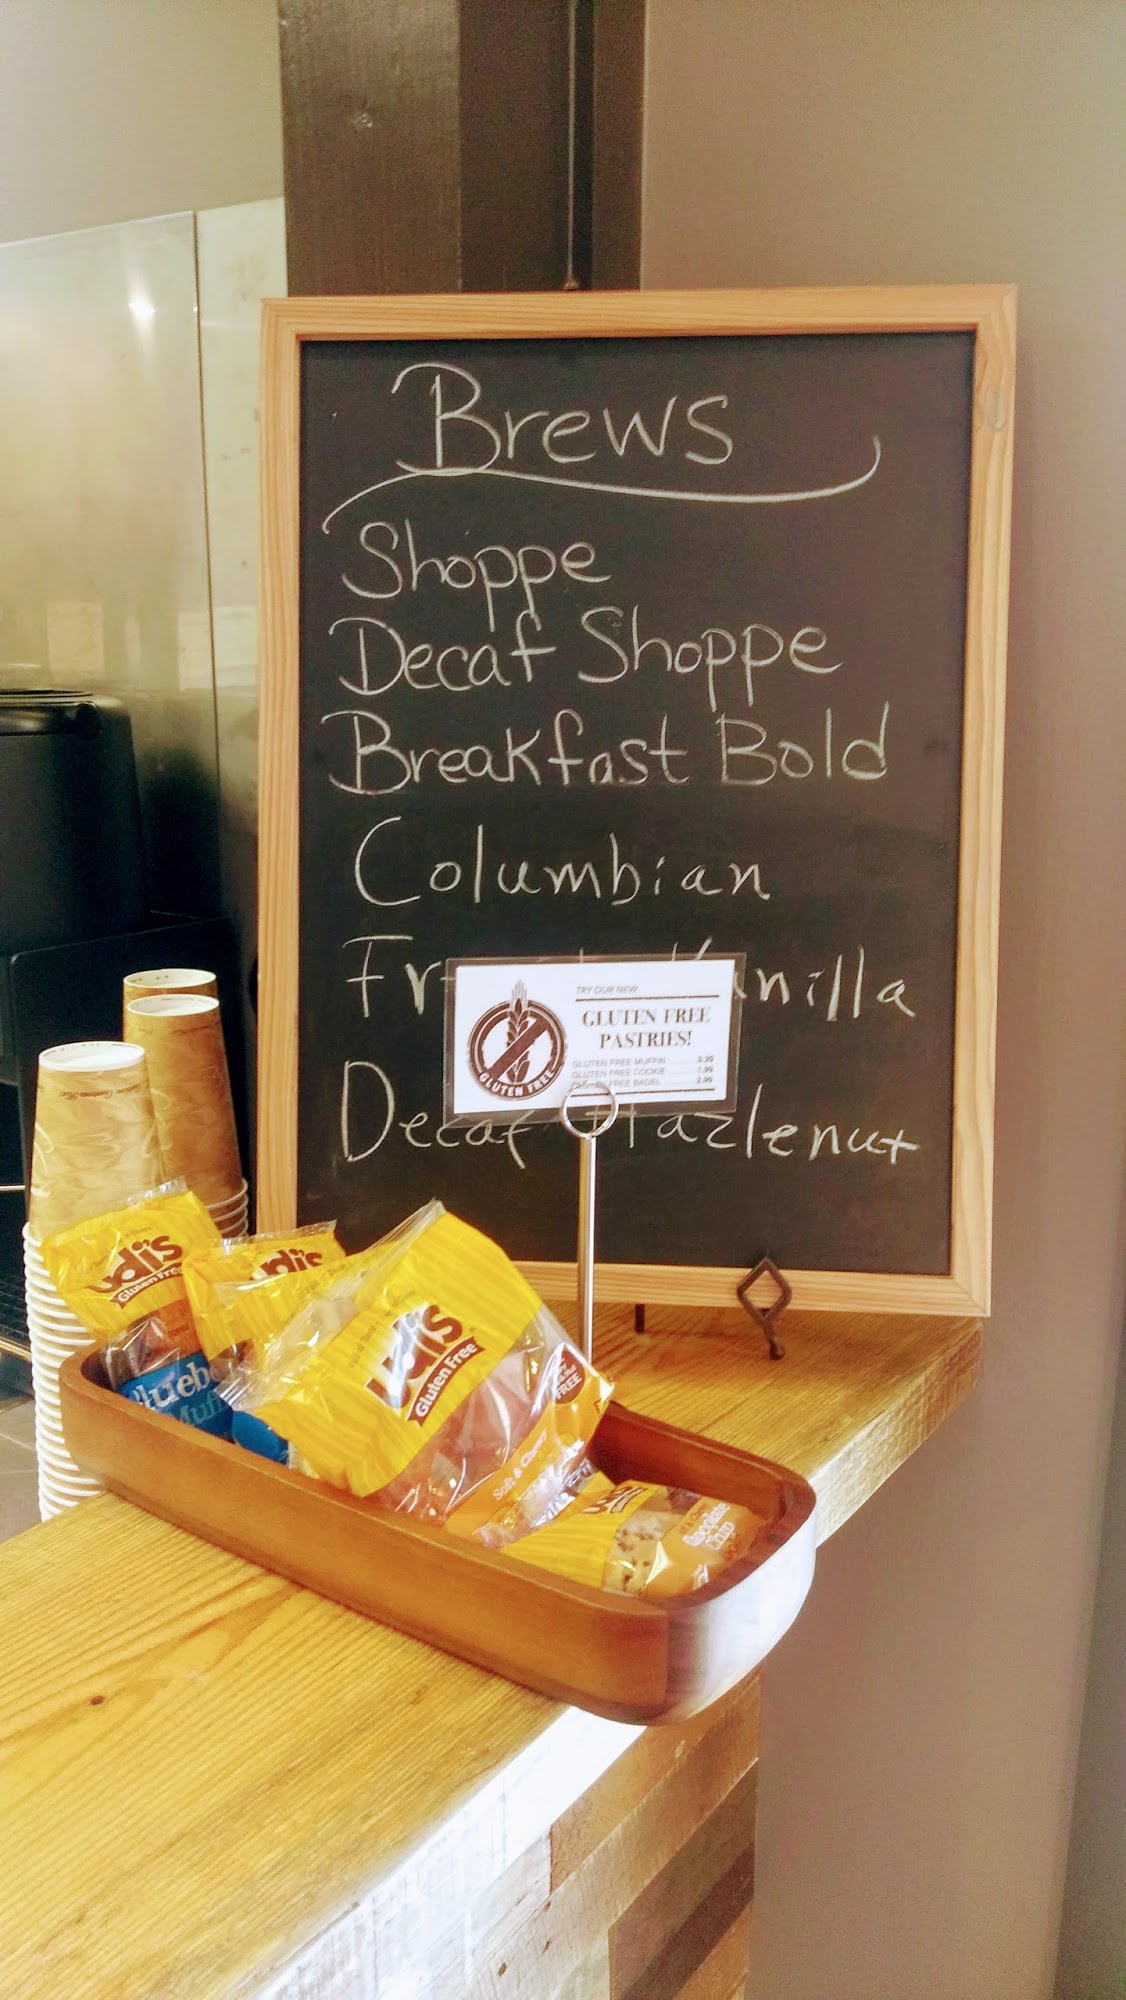 Brews
Shoppe
Decaf Shoppe
Breakfast Bold
Columbian
Decaf Hazlenut
TRY OUR NEW
GLUTEN FREE
PASTRIES!
GLUTEN FREE MUFFIN 3.29
GLUTEN FREE COOKIE 1.99
GLUTEN FREE BAGEL 2.99
GLUTEN FREE
udi's
Gluten Free
udi's
udi's
Gluten Free
FREE
Soft & Chewy
Chocolate
Chip